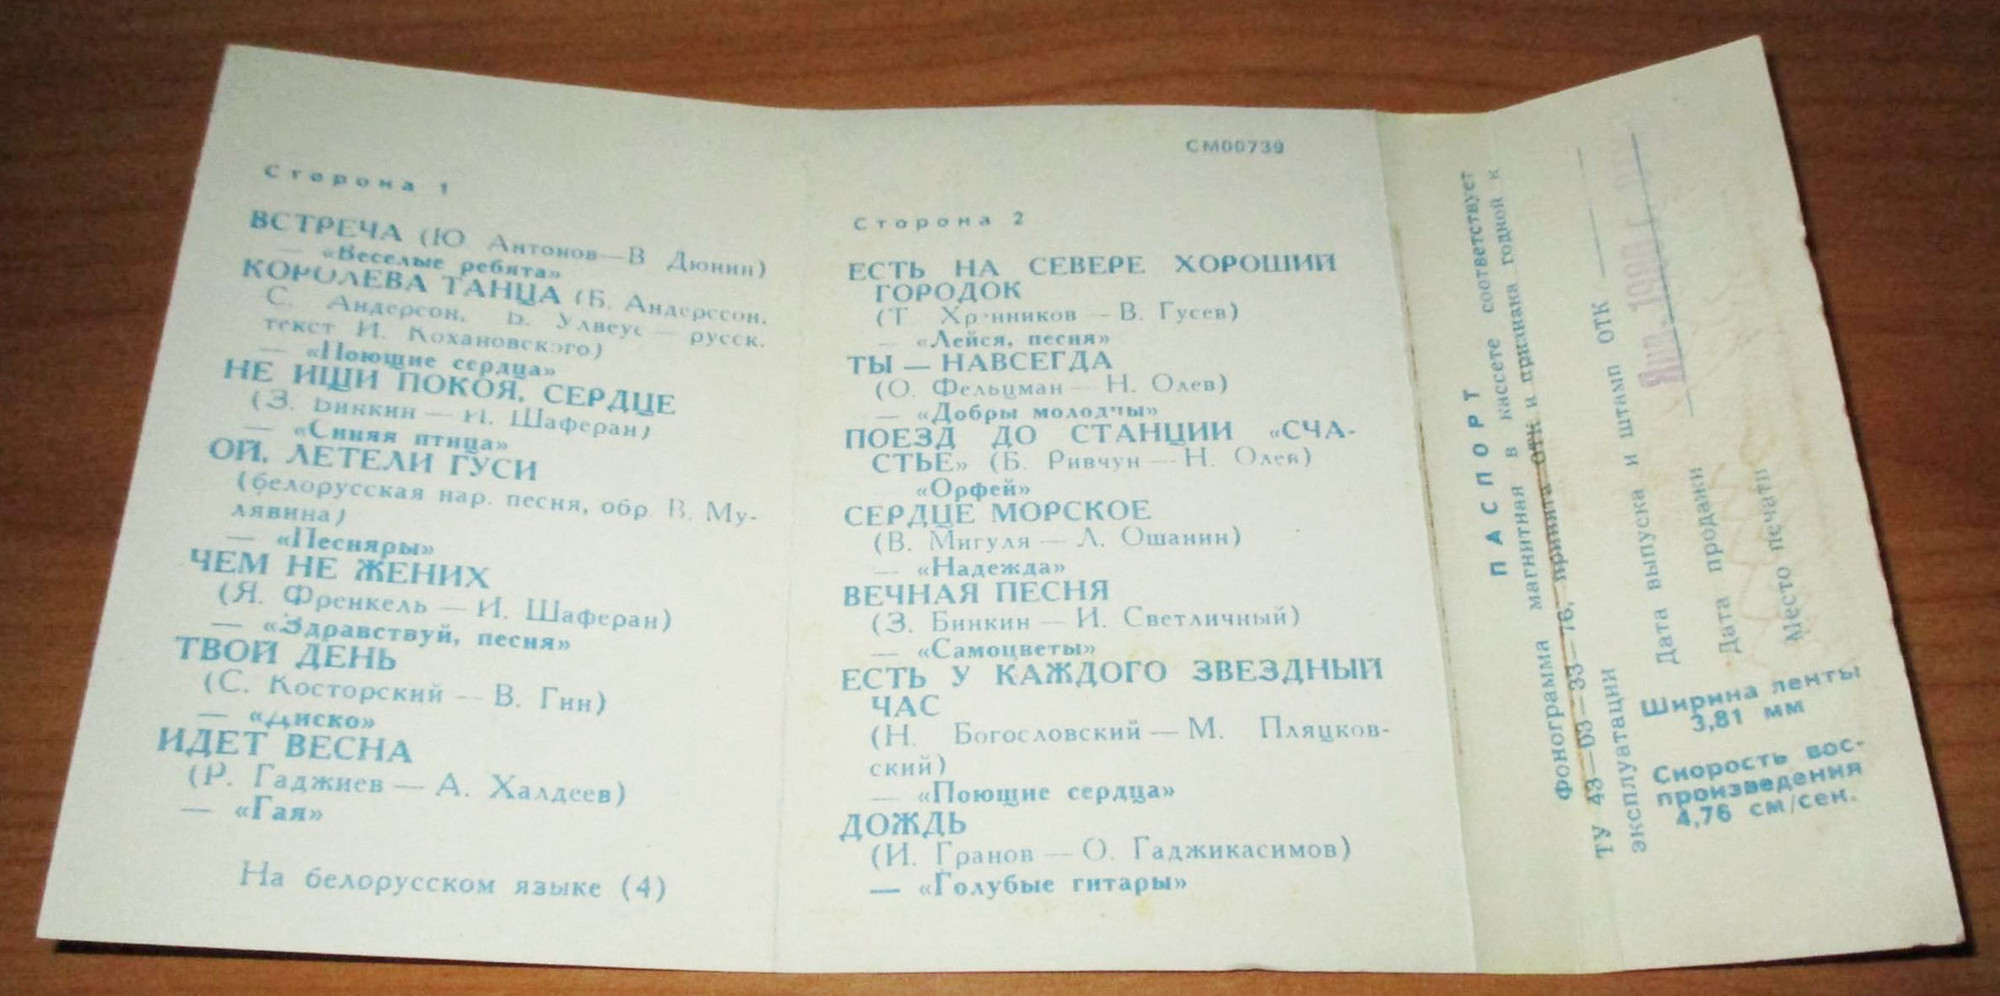 Сторона 1
ВСТРЕЧА (Ю. Антонов — В. Дюнин)
— «Веселые ребята»
КОРОЛЕВА ТАНЦА (Б. Андерссон,
С. Андерсон, Б. Улвеус — русск.
текст И. Кохановского)
— «Поющие сердца»
НЕ ИЩИ ПОКОЯ, СЕРДЦЕ
(З. Бинкин — И. Шаферан)
— «Синяя птица»
ОЙ, ЛЕТЕЛИ ГУСИ
(белорусская нар. песня, обр. В. Му-
лявина)
— «Песняры»
ЧЕМ НЕ ЖЕНИХ
(Я. Френкель — И. Шаферан)
— «Здравствуй, песня»
ТВОЙ ДЕНЬ
(С. Косторский — В. Гин)
— «Диско»
ИДЕТ ВЕСНА
(Р. Гаджиев — А. Халдеев)
— «Гая»
На белорусском языке (4)
СМ00739
Сторона 2
ЕСТЬ НА СЕВЕРЕ ХОРОШИЙ
ГОРОДОК
(Т. Хренников — В. Гусев)
— «Лейся, песня»
ТЫ — НАВСЕГДА
(О. Фельцман — Н. Олев)
— «Добры молодцы»
ПОЕЗД ДО СТАНЦИИ «СЧА-
СТЬЕ» (Б. Ривчун — Н. Олев)
«Орфей»
СЕРДЦЕ МОРСКОЕ
(В. Мигуля — Л. Ошанин)
— «Надежда»
ВЕЧНАЯ ПЕСНЯ
(З. Бинкин — И. Светличный)
— «Самоцветы»
ЕСТЬ У КАЖДОГО ЗВЕЗДНЫЙ
ЧАС
(Н. Богословский — М. Пляцков-
ский)
— «Поющие сердца»
ДОЖДЬ
(И. Гранов — О. Гаджикасимов)
— «Голубые гитары»
ПАСПОРТ
Фонограмма магнитная в кассете соответствует
ТУ 43—03—33—76, принята ОТК и признана годной к
эксплуатации
Дата выпуска и штамп ОТК
Янв. 1980 г.
Дата продажи
Место печати
Ширина ленты
3,81 мм
Скорость вос-
произведения
4,76 см/сек.